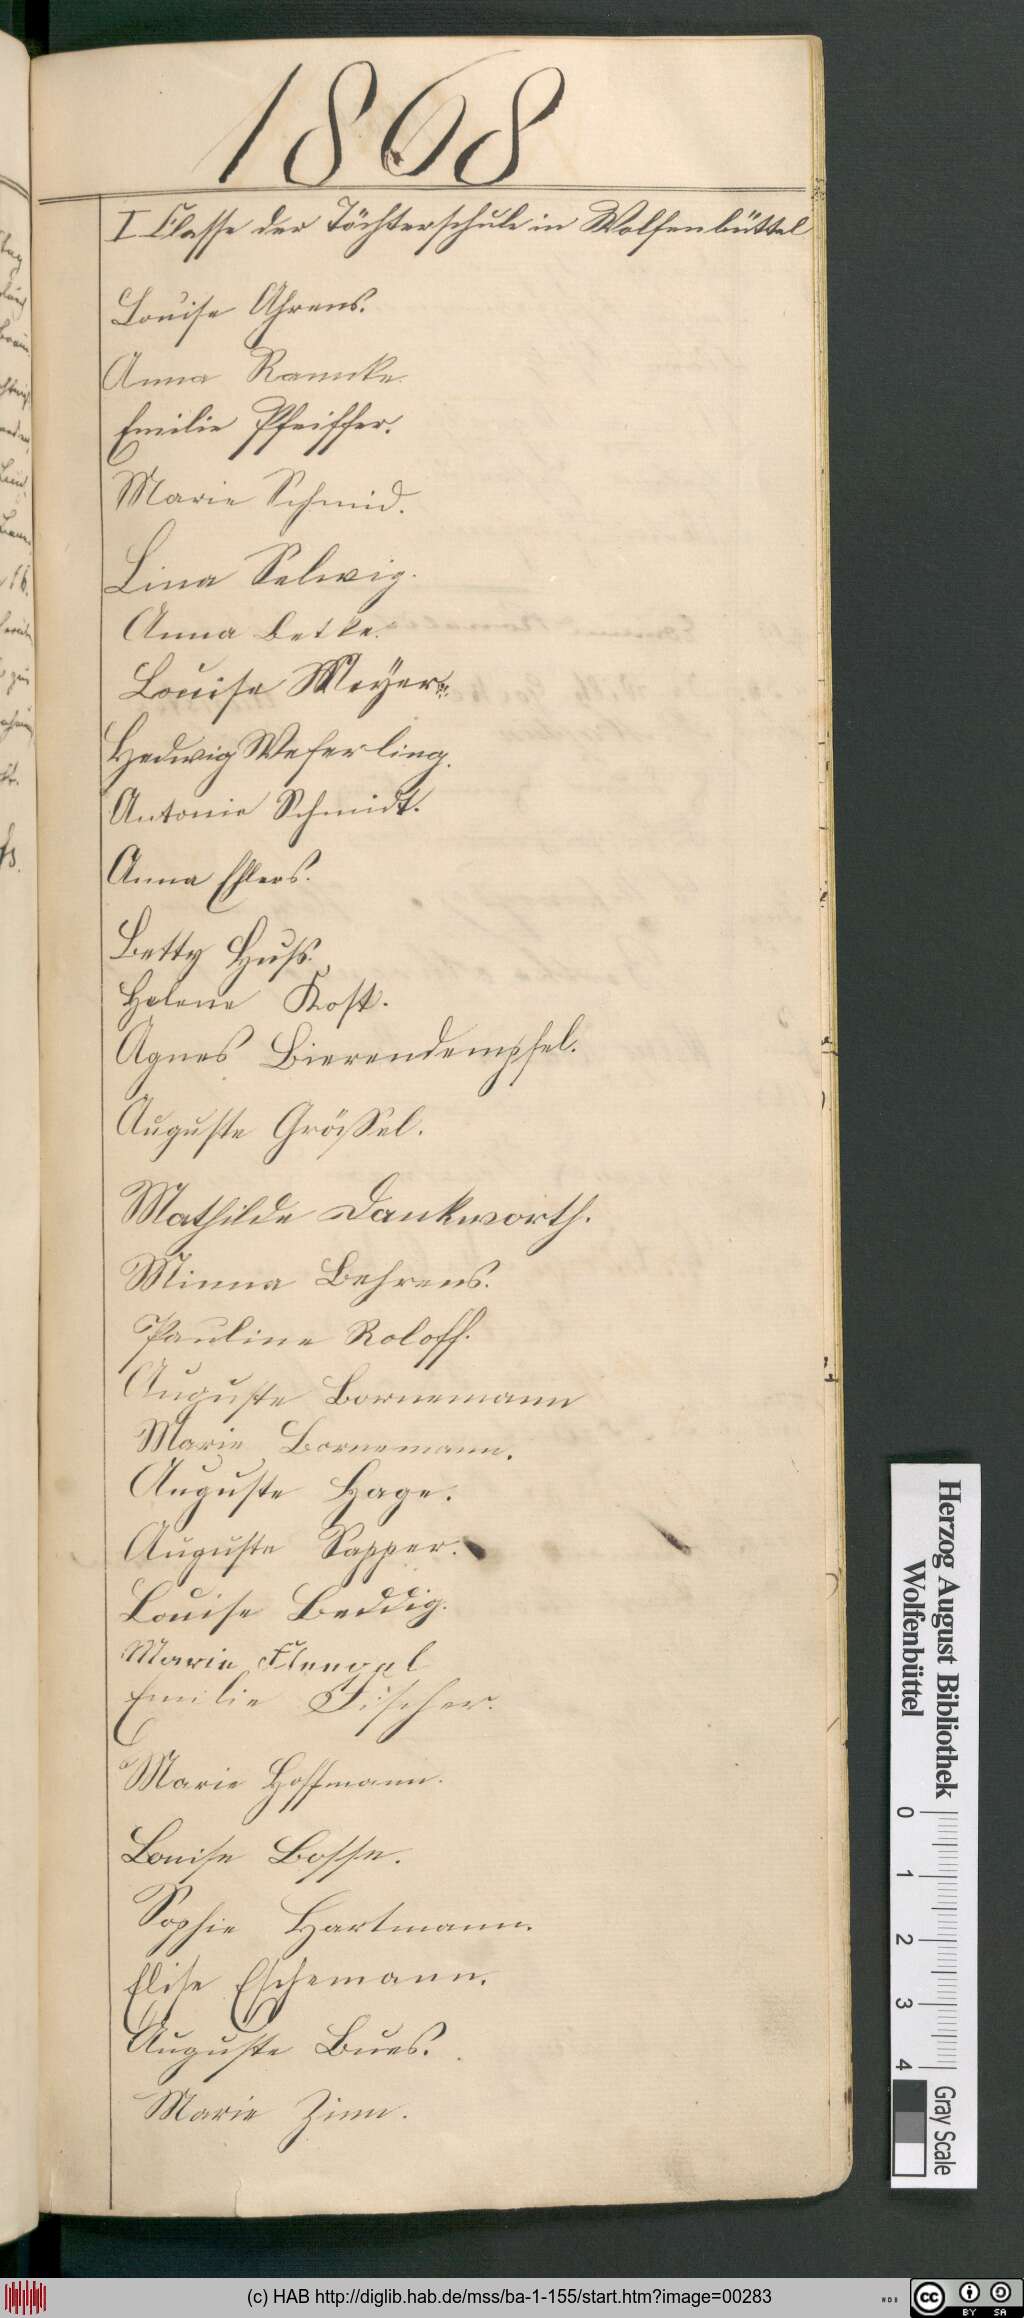 1868
I Classe der Töchterschule in Wolfenbüttel
Louise Ahrens.
Anna Ramcke.
Emilie Pfeiffer.
Marie Schmid.
Lina Selwig.
Anna Betke.
Louise Meÿer.
Hedwig Weferling.
Antonie Schmidt.
Anna Ehlers.
Betty Huß.
Helene Kost.
Agnes Bierendempfel.
Auguste Größel.
Mathilde Dankworth.
Minna Behrens.
Pauline Roloff.
Auguste Bornemann
Marie Bornemann.
Auguste Hage.
Auguste Sapper.
Louise Beddig.
Marie
Emilie Fischer.
Marie Hoffmann.
Louise Bosse.
Sophie Hartmann.
Elise Eschemann.
Auguste Bues.
Marie Zinn.
Herzog August Bibliothek
Wolfenbüttel
0 1 2 3 4
Gray Scale
(c) HAB http://diglib.hab.de/mss/ba-1-155/start.htm?image=00283
cc BY SA